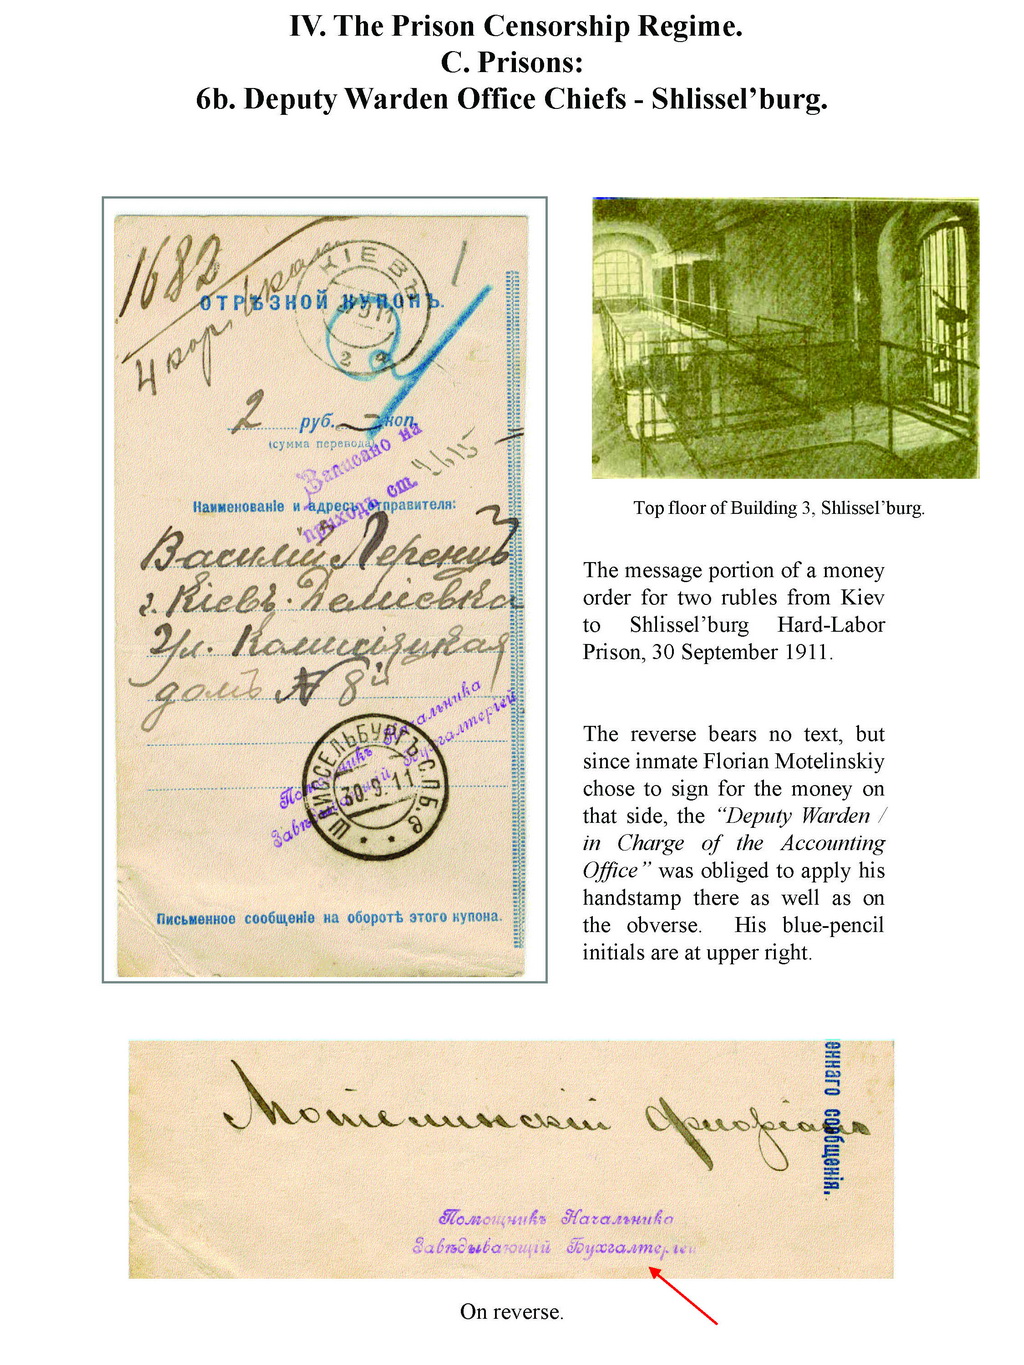 IV. The Prison Censorship Regime.
C. Prisons:
6b. Deputy Warden Office Chiefs - Shlissel’burg.
1682
4 кор.
КІЕВЪ
ОТРѢЗНОЙ КУПОНЪ.
2 руб. — коп.
(сумма перевода)
Записано на
приходъ ст.
Наименованіе и адресъ отправителя:
Василій
г. Кіевъ. Деміевка
Ул.
домъ № 8й
Помощникъ Начальника
Завѣдывающій Бухгалтеріей
ШЛИССЕЛЬБУРГЪ С.П.Б.
30.9.11
Письменное сообщеніе на оборотѣ этого купона.
Top floor of Building 3, Shlissel’burg.
The message portion of a money
order for two rubles from Kiev
to Shlissel’burg Hard-Labor
Prison, 30 September 1911.
The reverse bears no text, but
since inmate Florian Motelinskiy
chose to sign for the money on
that side, the “Deputy Warden /
in Charge of the Accounting
Office” was obliged to apply his
handstamp there as well as on
the obverse. His blue-pencil
initials are at upper right.
Мотелинскій Флоріанъ
еннаго сообщенія.
Помощникъ Начальника
Завѣдывающій Бухгалтеріей
On reverse.